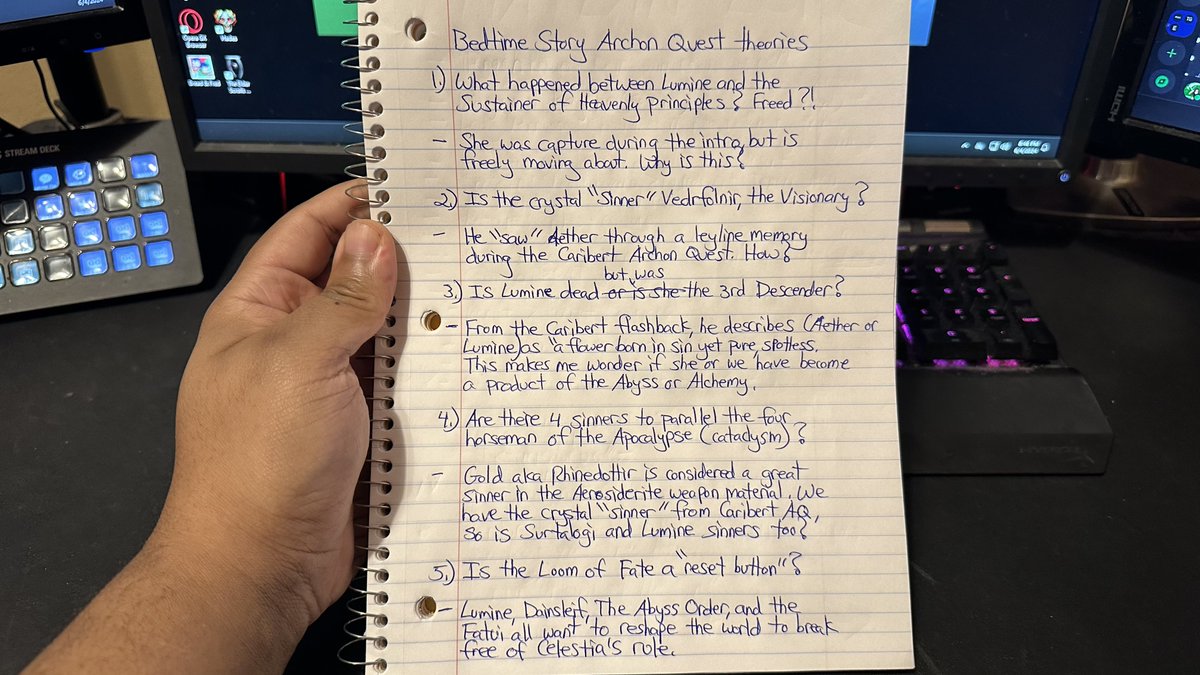 6/4/2024
STREAM DECK
Bedtime Story Archon Quest theories
1.) What happened between Lumine and the
Sustainer of Heavenly Principles? Freed?!
- She was capture during the intro, but is
freely moving about. Why is this?
2.) Is the crystal "Sinner" Vedrfolnir, the Visionary?
- He "saw" Aether through a leyline memory
during the Caribert Archon Quest. How?
but, was
3.) Is Lumine dead or is she the 3rd Descender?
- From the Caribert flashback, he describes (Aether or
Lumine) as "a flower born in sin yet pure, spotless.
This makes me wonder if she or we have become
a product of the Abyss or Alchemy.
4.) Are there 4 sinners to parallel the four
horseman of the Apocalypse (cataclysm)?
- Gold aka Rhinedottir is considered a great
sinner in the Aerosiderite weapon material. We
have the crystal "sinner" from Caribert AQ,
so is Surtalogi and Lumine sinners too?
5.) Is the Loom of Fate a "reset button"?
- Lumine, Dainsleif, The Abyss Order, and the
Fatui all want to reshape the world to break
free of Celestia's rule.